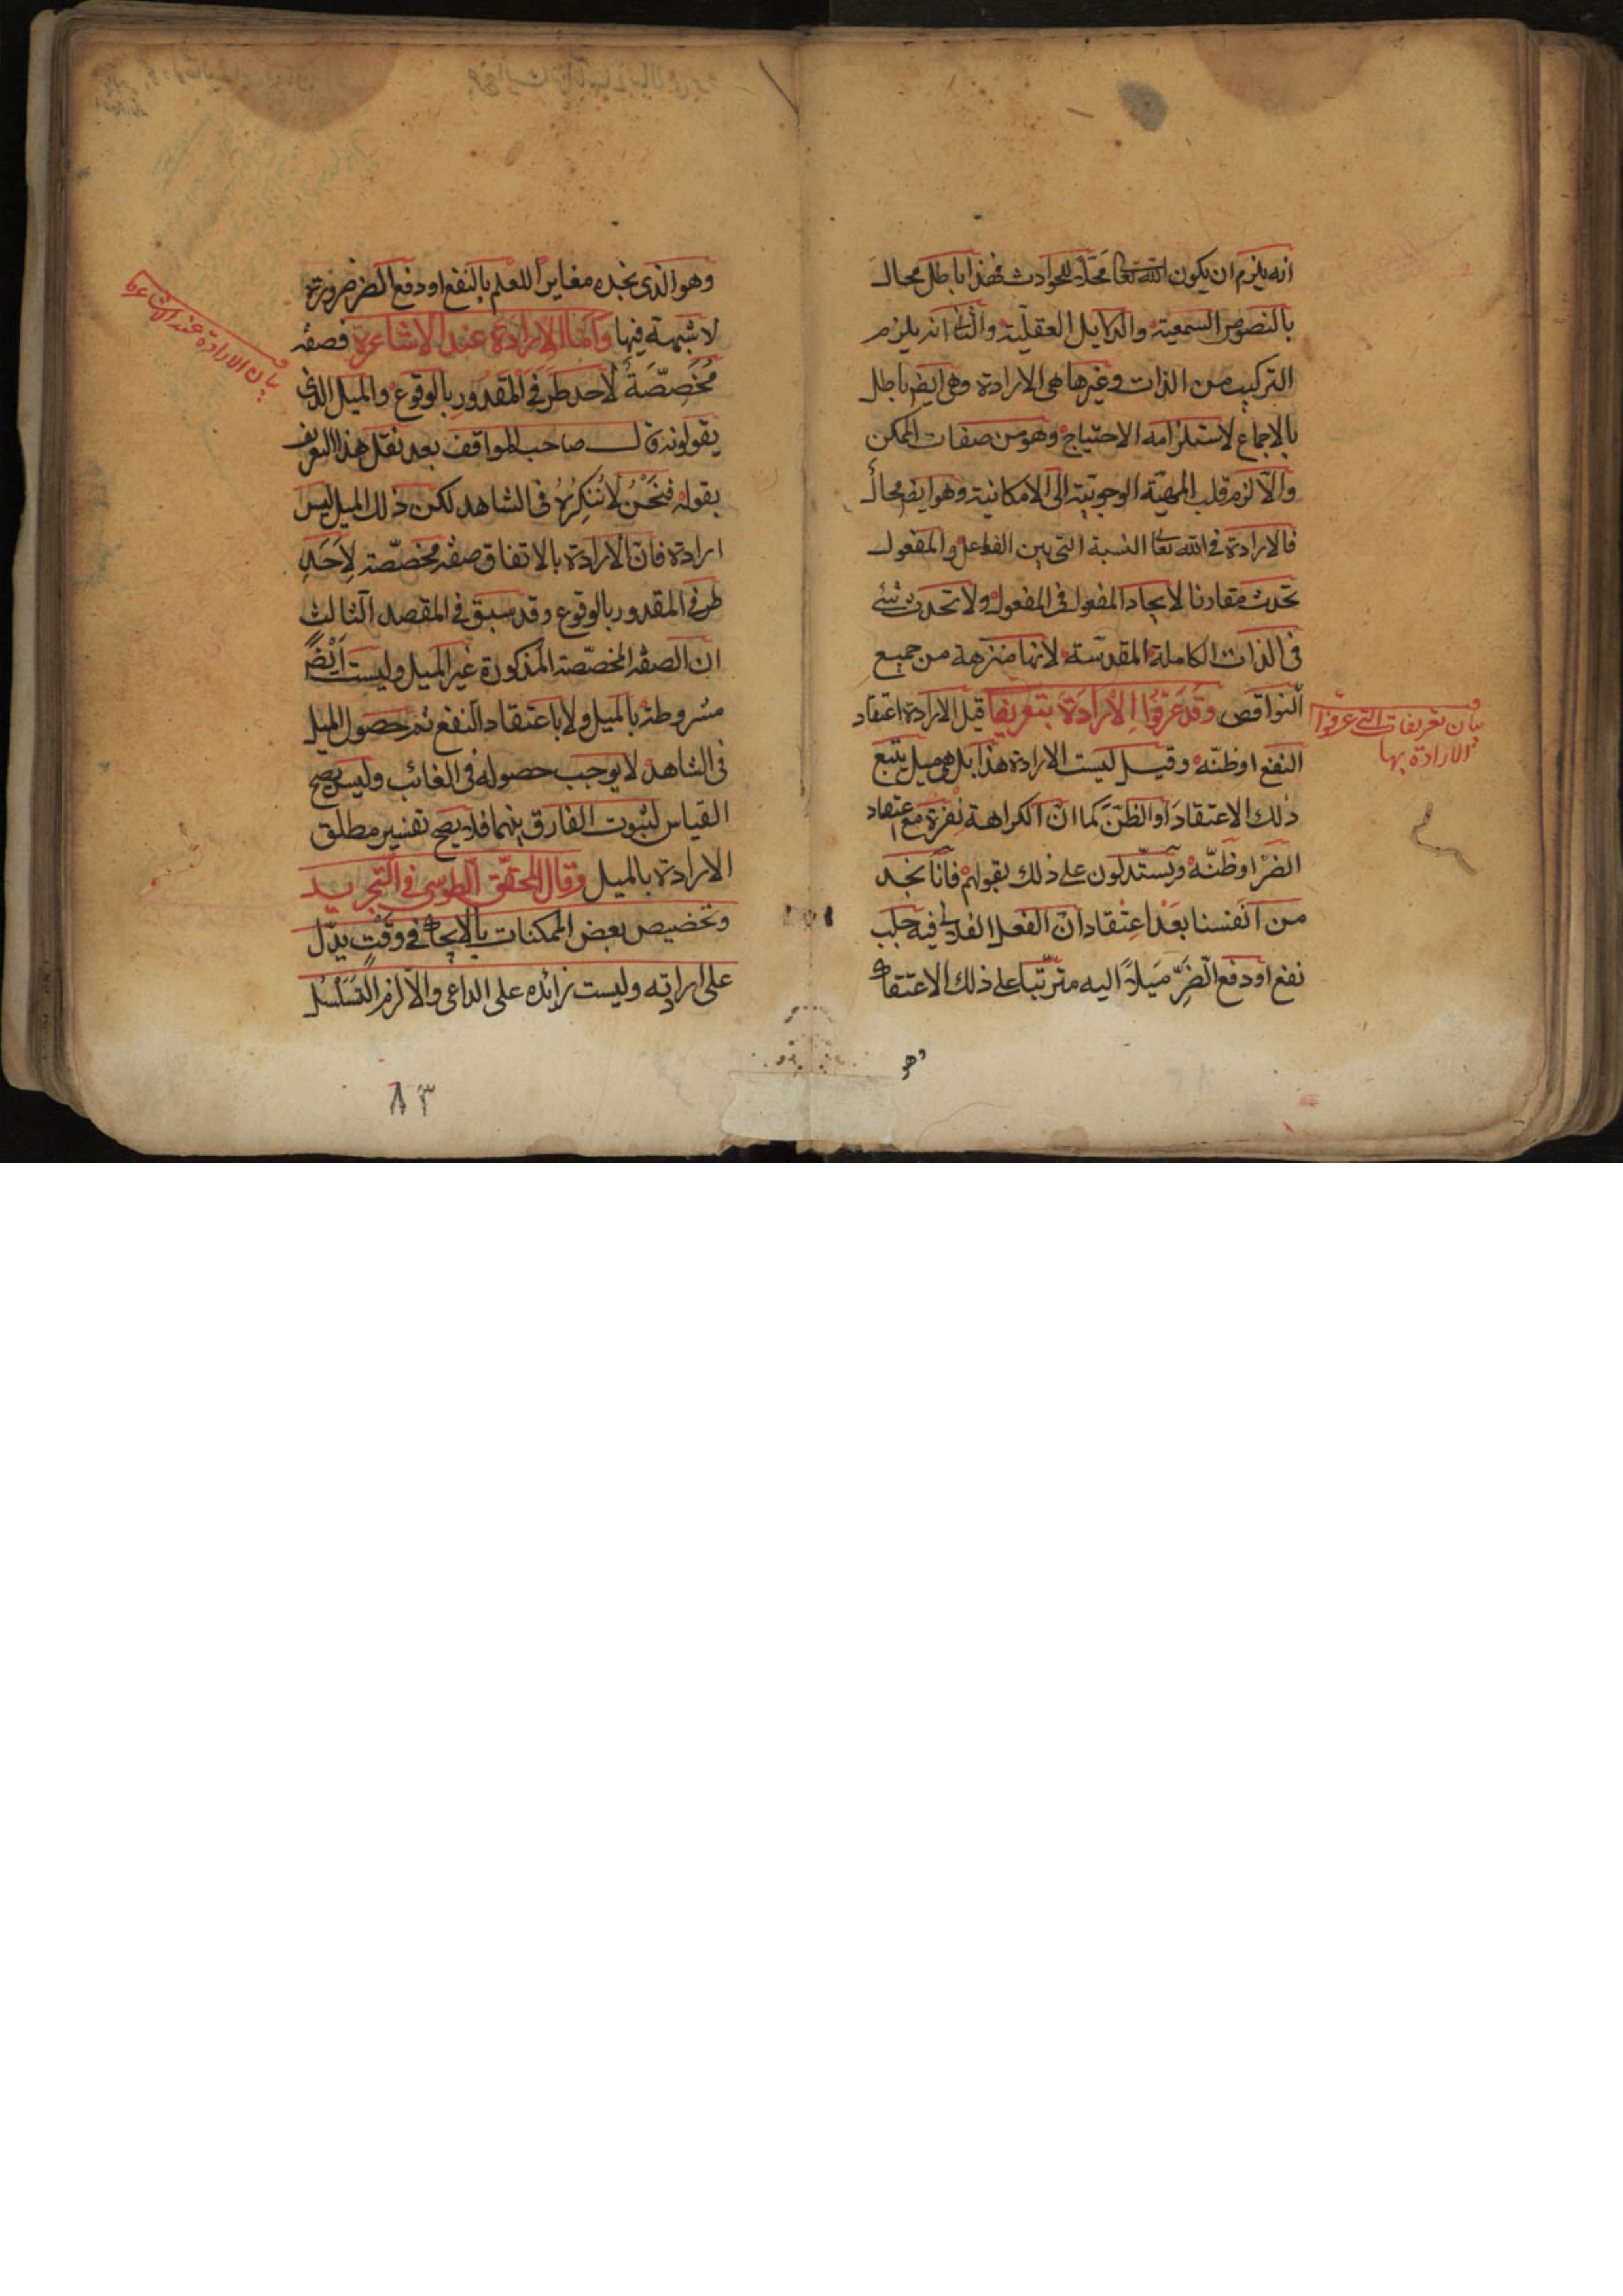 انه يلزم ان يكون الله تعا محلا للحوادث فهذا باطل محال
بالنصوص السمعية والدلايل العقلية والثانى انه يلزم
التركيب من الذات وغيرها هى الارادة وهى ايض باطل
بالاجماع لاستلزامه الاحتياج وهو من صفات الممكن
والا لزم قلب المهية الوجوبية الى الامكانية وهو ايض محال
فالارادة فى الله تعا النسبة التى بين الفاعل والمفعول
تحدث مقارنا لايجاد المفعول فى المفعول ولا تحدث شئ
فى الذات الكاملة المقدسة لانها منزهة من جميع
النواقص وقد عرفوا الارادة بتعريفا قيل الارادة اعتقاد
النفع او ظنه وقيل ليست الارادة هذا بل هى ميل يتبع
ذلك الاعتقاد او الظن كما ان الكراهة نفرة مع اعتقاد
الضر او ظنه ويستدلون على ذلك بقولهم فانا نجد
من انفسنا بعد اعتقاد ان الفعل الفلا فيه جلب
نفع او دفع الضر ميلا اليه مترتبا على ذلك الاعتقاد
وهو
بيان تعريفات التى عرفوا
الارادة بها
وهو الذى نجده مغايرا للعلم بالنفع او دفع الضر ضرورة
لا شبهة فيها واما الارادة عند الاشاعرة فصفة
مخصصة لاحد طرفى المقدور بالوقوع والميل الذى
يقولونه قال صاحب المواقف بعد نقل هذا التعريف
بقوله فنحن لا ننكره فى الشاهد لكن ذلك الميل ليس
ارادة فان الارادة بالاتفاق صفة مخصصة لاحد
طرفى المقدور بالوقوع وقد سبق فى المقصد الثالث
ان الصفة المخصصة المذكورة غير الميل وليست ايضا
مشروطة بالميل ولا باعتقاد النفع ثم حصول الميل
فى الشاهد لا يوجب حصوله فى الغائب وليس يصح
القياس لثبوت الفارق بينهما فلا يصح تفسير مطلق
الارادة بالميل وقال المحقق الطوسى فى التجريد
وتخصيص بعض الممكنات بالايجاد فى وقت يدل
على ارادته وليست زائده على الداعى والا لزم التسلسل
بيان الارادة عند الاشاعرة
٨٣